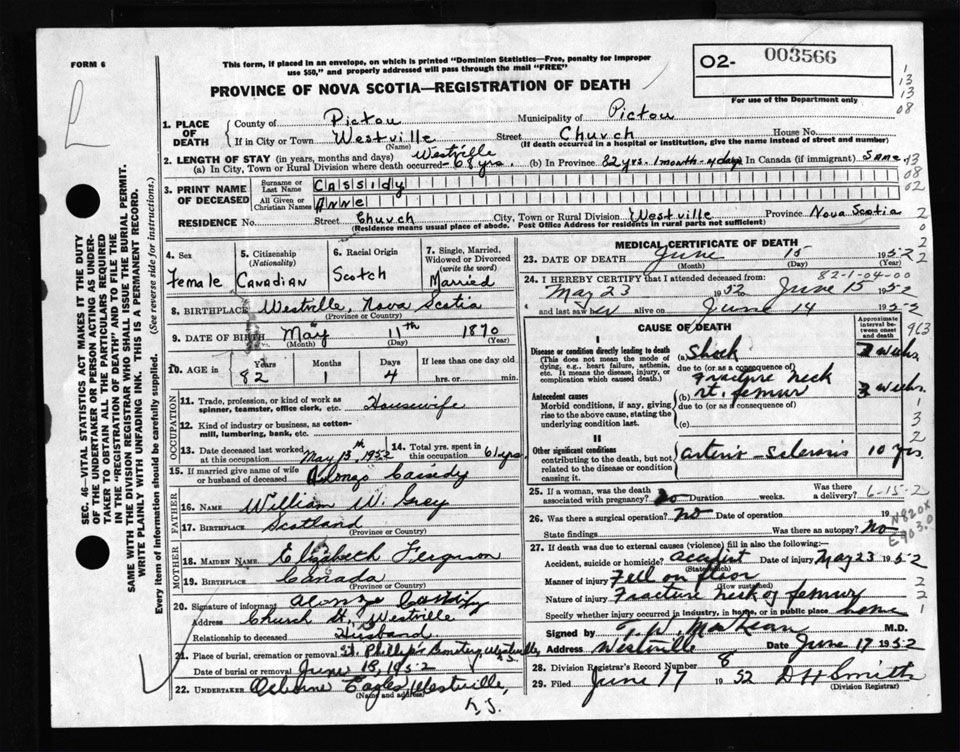 FORM 6
This form, if placed in an envelope, on which is printed "Dominion Statistics—Free, penalty for improper
use $50," and properly addressed will pass through the mail "FREE"
O2- 003566
For use of the Department only
1
13
13
08
PROVINCE OF NOVA SCOTIA—REGISTRATION OF DEATH
1. PLACE OF DEATH
County of Pictou Municipality of Pictou
If in City or Town Westville (Name) Street Church House No.
(If death occurred in a hospital or institution, give the name instead of street and number)
2. LENGTH OF STAY (in years, months and days)
(a) In City, Town or Rural Division where death occurred Westville 68 yrs. (b) In Province 82 yrs. 1 month 4 days In Canada (if immigrant) Same
13
08
02
3. PRINT NAME OF DECEASED
Surname or Last Name Cassidy
All Given or Christian Names Anne
RESIDENCE No. Street Church City, Town or Rural Division Westville Province Nova Scotia
(Residence means usual place of abode. Post Office Address for residents in rural parts not sufficient)
4. Sex Female
5. Citizenship (Nationality) Canadian
6. Racial Origin Scotch
7. Single, Married, Widowed or Divorced (write the word) Married
8. BIRTHPLACE Westville, Nova Scotia
(Province or Country)
9. DATE OF BIRTH May 11th 1870
(Month) (Day) (Year)
10. AGE in Years 82 Months 1 Days 4 If less than one day old
hrs. or min.
OCCUPATION
11. Trade, profession, or kind of work as spinner, teamster, office clerk, etc. Housewife
12. Kind of industry or business, as cotton-mill, lumbering, bank, etc.
13. Date deceased last worked at this occupation May 13th, 1952
14. Total yrs. spent in this occupation 61 yrs.
15. If married give name of wife or husband of deceased Alonzo Cassidy
FATHER
16. NAME William W. Grey
17. BIRTHPLACE Scotland
(Province or Country)
MOTHER
18. MAIDEN NAME Elizabeth Ferguson
19. BIRTHPLACE Canada
(Province or Country)
20. Signature of informant Alonzo Cassidy
Address Church St., Westville
Relationship to deceased Husband
21. Place of burial, cremation or removal St. Phillip's Cemetery, Westville, N.S.
Date of burial or removal June 18, 1952
22. UNDERTAKER Osborne Eagles, Westville,
(Name and address)
N.S.
MEDICAL CERTIFICATE OF DEATH
23. DATE OF DEATH June 15 1952
(Month) (Day) (Year)
82-1-04-00
24. I HEREBY CERTIFY that I attended deceased from:
May 23 1952 June 15 1952
and last saw her alive on June 14 1952
CAUSE OF DEATH
Approximate interval between onset and death
963
I
Disease or condition directly leading to death
(This does not mean the mode of dying, e.g., heart failure, asthenia, etc. It means the disease, injury, or complication which caused death.
(a) Shock weeks
due to (or as a consequence of)
Antecedent causes
Morbid conditions, if any, giving rise to the above cause, stating the underlying condition last.
(b) Fracture neck rt. femur 3 weeks
due to (or as a consequence of)
(c)
II
Other significant conditions
contributing to the death, but not related to the disease or condition causing it.
arterio-sclerosis 10 yrs.
25. If a woman, was the death associated with pregnancy? no Duration weeks. Was there a delivery?
6-15-2
26. Was there a surgical operation? no Date of operation 19
State findings Was there an autopsy? No
N820X
E903.0
27. If death was due to external causes (violence) fill in also the following:—
Accident, suicide or homicide? accident Date of injury May 23 1952
(State which)
Manner of injury Fell on floor
(How sustained)
Nature of injury Fracture neck of femur
Specify whether injury occurred in industry, in home, or in public place home
Signed by MacLean M.D.
Address Westville Date June 17 1952
28. Division Registrar's Record Number 8
29. Filed June 17 1952 D H Smith
(Division Registrar)
SEC. 46—VITAL STATISTICS ACT MAKES IT THE DUTY
OF THE UNDERTAKER OR PERSON ACTING AS UNDER-
TAKER TO OBTAIN ALL THE PARTICULARS REQUIRED
IN THE "REGISTRATION OF DEATH" AND TO FILE THE
SAME WITH THE DIVISION REGISTRAR WHO SHALL ISSUE THE BURIAL PERMIT.
WRITE PLAINLY WITH UNFADING INK. THIS IS A PERMANENT RECORD.
Every item of information should be carefully supplied. (See reverse side for instructions.)